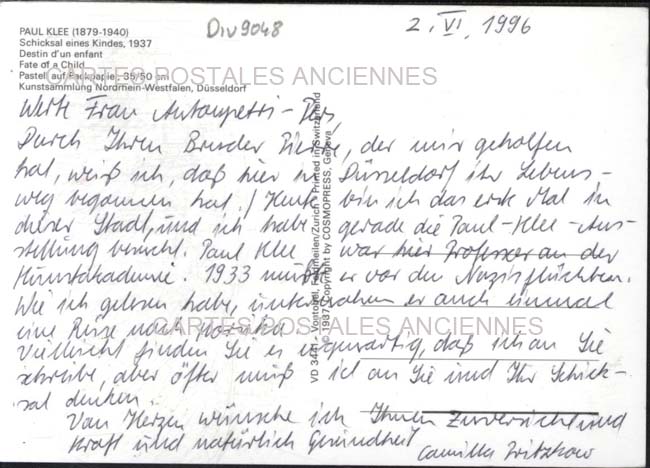 PAUL KLEE (1879-1940)
Schicksal eines Kindes, 1937
Destin d'un enfant
Fate of a Child
Pastell auf Packpapier; 35/50 cm
Kunstsammlung Nordrhein-Westfalen, Düsseldorf
Div9048
2. VI. 1996
CARTES POSTALES ANCIENNES
Werte Frau
Durch Ihren Bruder Pierre, der mir geholfen
hat, weiß ich, daß hier in Düsseldorf ihr Lebens-
weg begonnen hat. Heute bin ich das erste Mal in
dieser Stadt, und ich habe gerade die Paul-Klee-Aus-
stellung besucht. Paul Klee war hier Professor an der
Kunstakademie. 1933 mußte er vor den Nazis flüchten.
Wie ich gelesen habe, unternahm er auch einmal
eine Reise nach Korsika
CARTES POSTALES ANCIENNES
Vielleicht finden Sie es eigenartig, daß ich an Sie
schreibe, aber öfter muß ich an Sie und Ihr Schick-
sal denken.
Von Herzen wünsche ich Ihnen Zuversicht und
Kraft und natürlich Gesundheit
Camilla
VD 3441 - Vontobel, Feldmeilen/Zürich - Printed in Switzerland
© 1937 Copyright by COSMOPRESS, Geneva